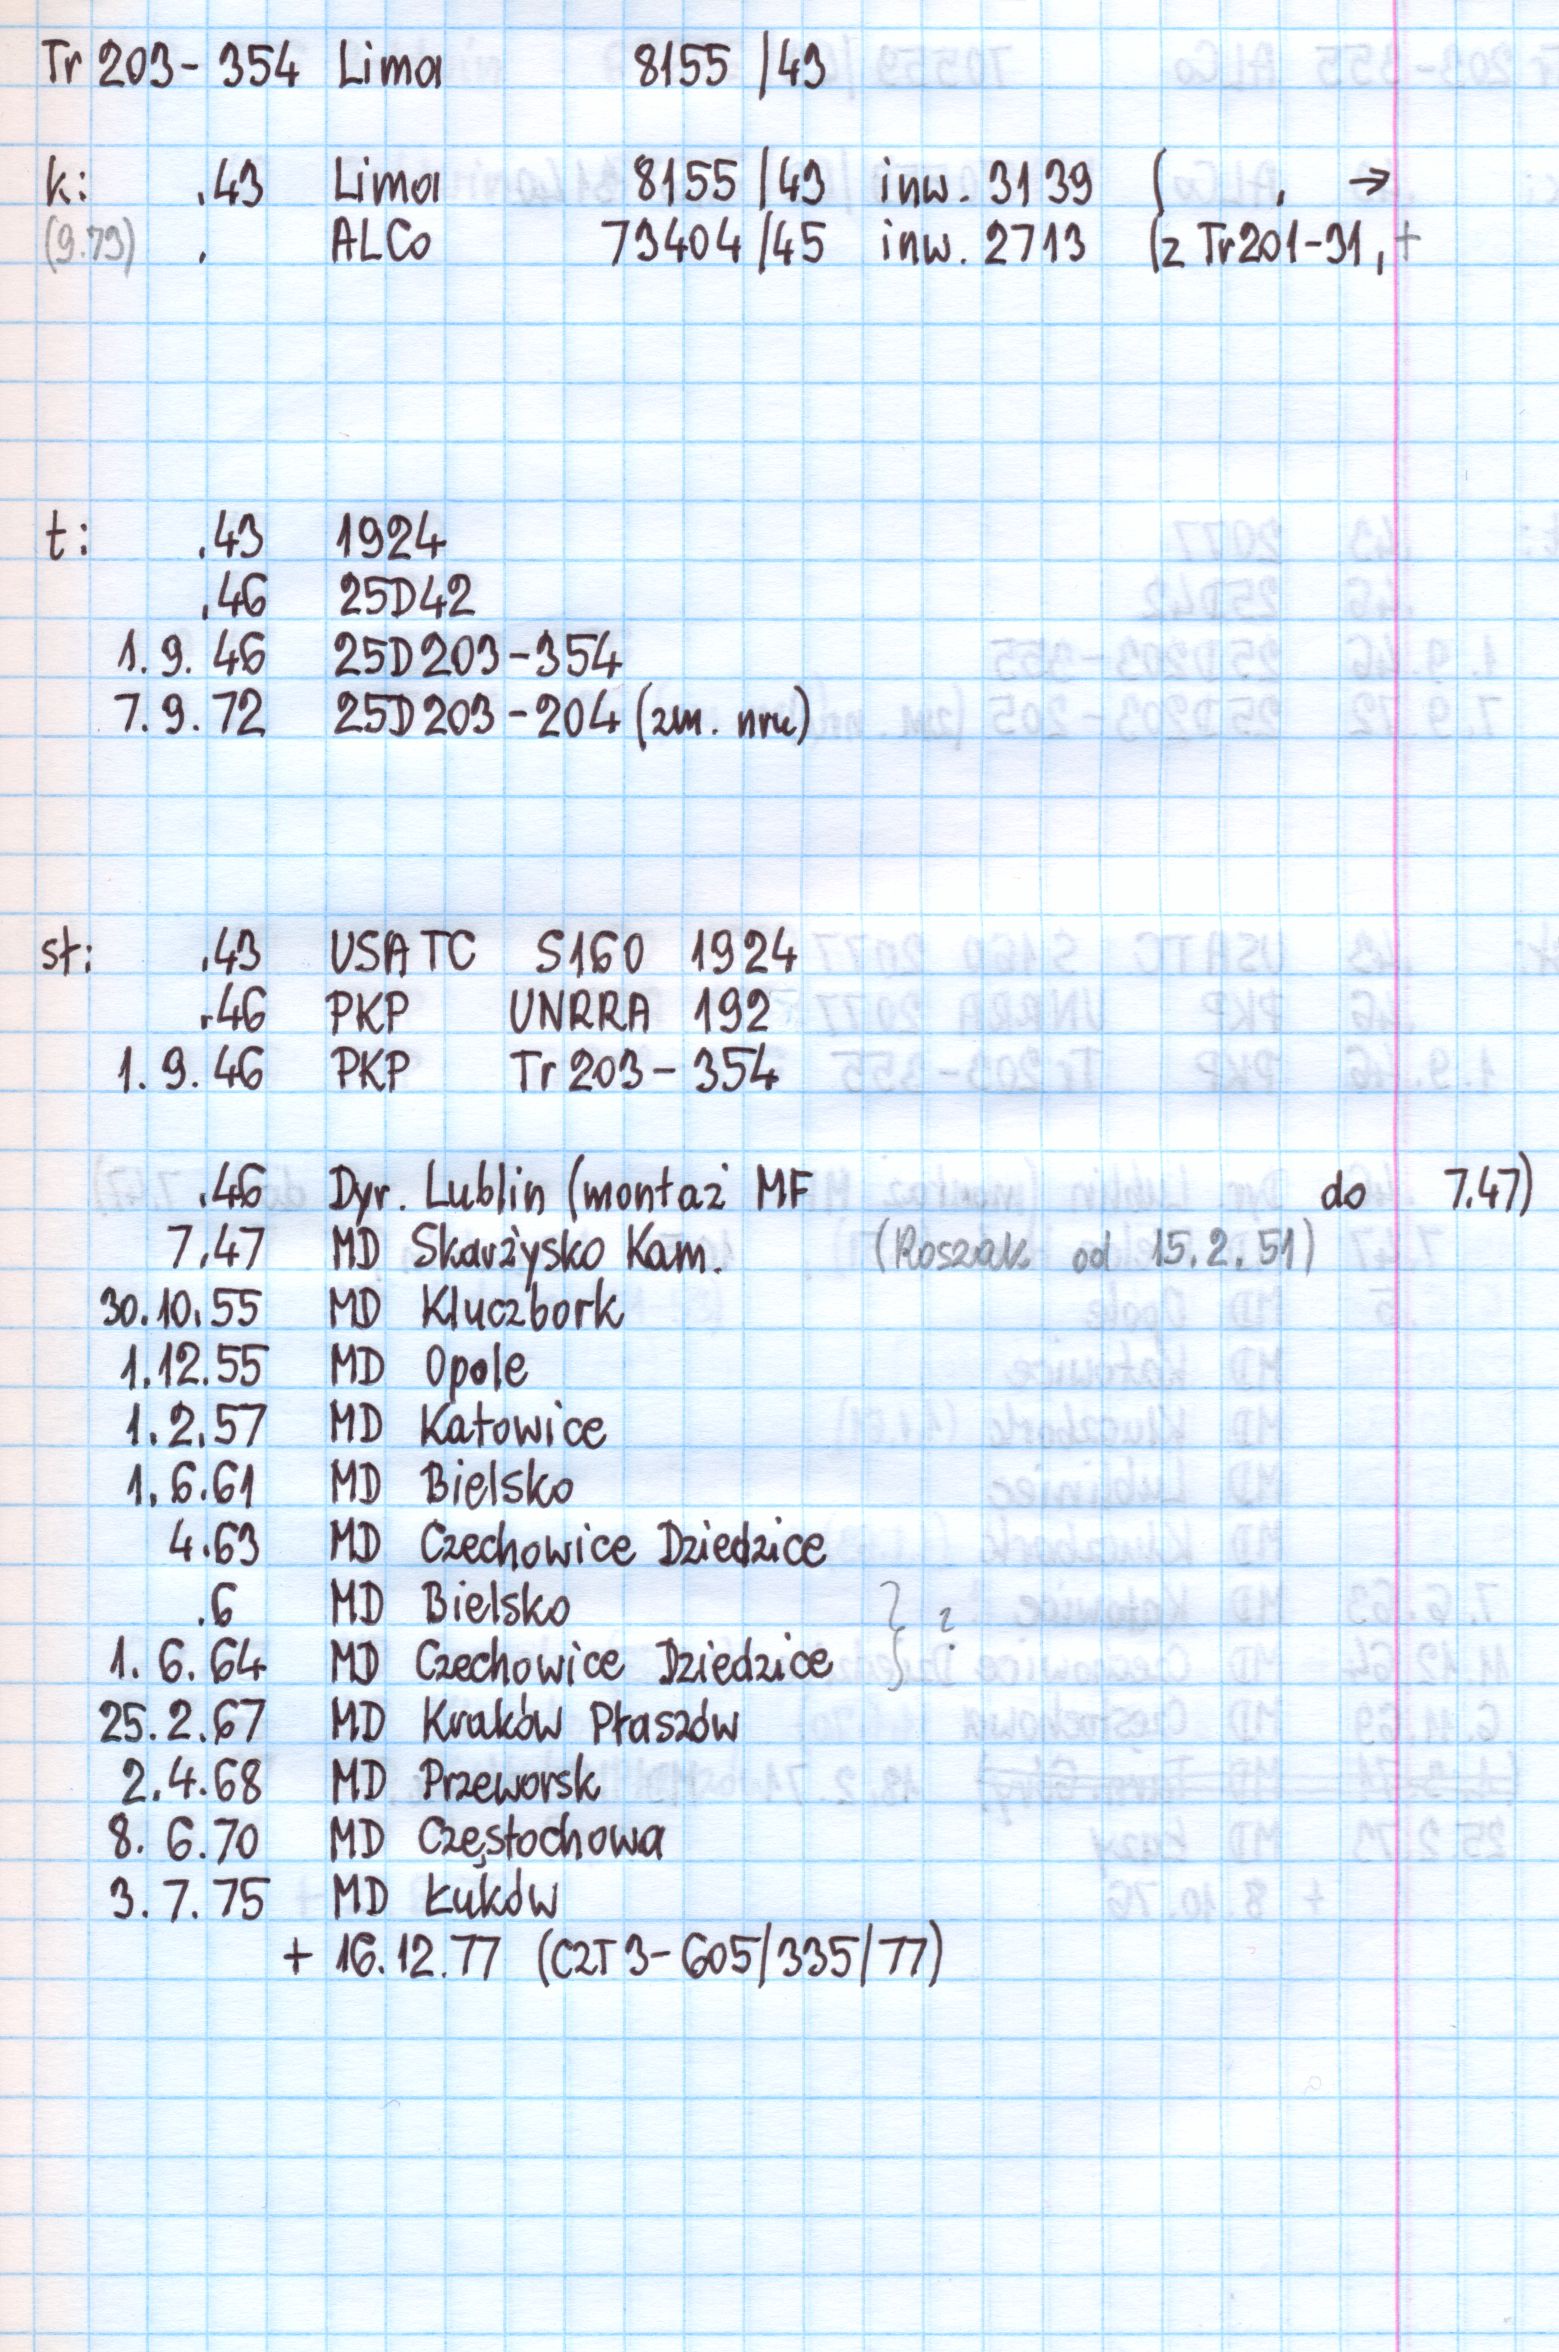 Tr 203-354 Lima 8155/43
k: .43 Lima 8155/43 inw. 3139 ( , →
(9.73) . ALCo 73404/45 inw. 2713 (z Tr201-31, +
t: .43 1924
.46 25D42
1.9.46 25D203-354
7.9.72 25D203-204 (zm. nru)
st: .43 USATC S160 1924
.46 PKP UNRRA 192
1.9.46 PKP Tr 203-354
.46 Dyr. Lublin (montaż MF do 7.47)
7.47 MD Skarżysko Kam. (Roszak od 15.2.51)
30.10.55 MD Kluczbork
1.12.55 MD Opole
1.2.57 MD Katowice
1.6.61 MD Bielsko
4.63 MD Czechowice Dziedzice
.6 MD Bielsko } ?
1.6.64 MD Czechowice Dziedzice
25.2.67 MD Kraków Płaszów
2.4.68 MD Przeworsk
8.6.70 MD Częstochowa
3.7.75 MD Łuków
+ 16.12.77 (CZT3-605/335/77)